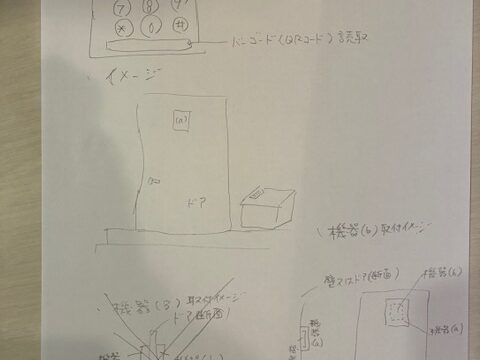 7 8 9
* 0 #
バーコード(QRコード)読取
イメージ
(a)
ドア
機器(b)取付イメージ
機器(a)取付イメージ
ドア(断面)
壁又はドア(断面)
機器(b)
機器(a)
機器
機器(a)